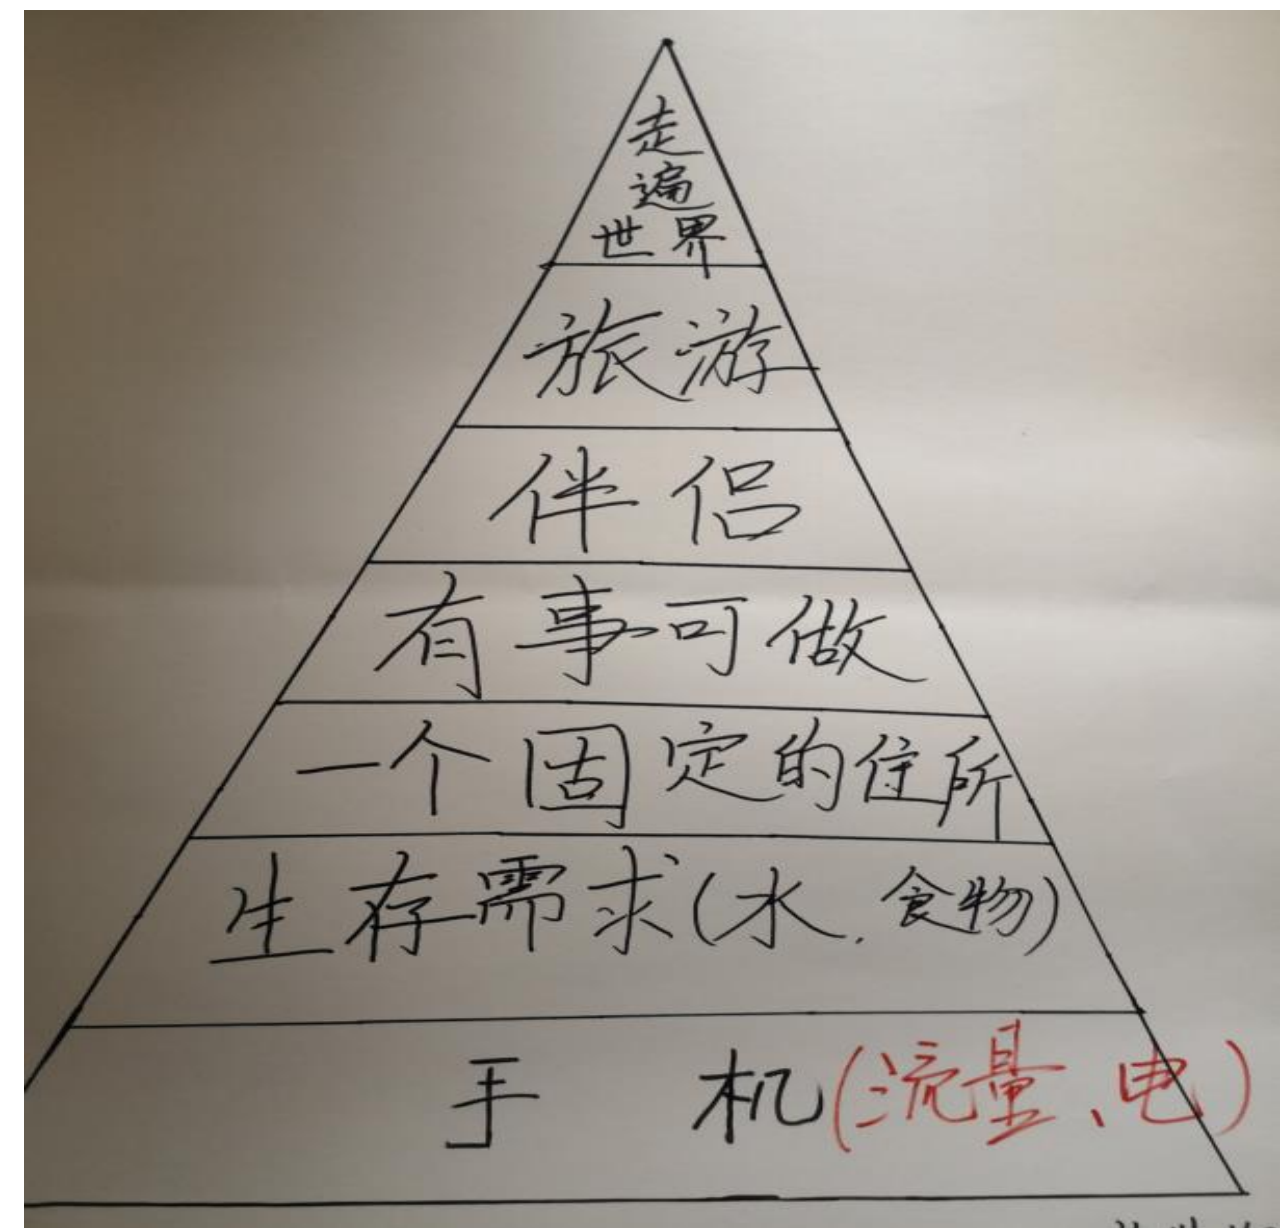 走
遍
世界
旅游
伴侣
有事可做
一个固定的住所
生存需求(水、食物)
手机(流量、电)